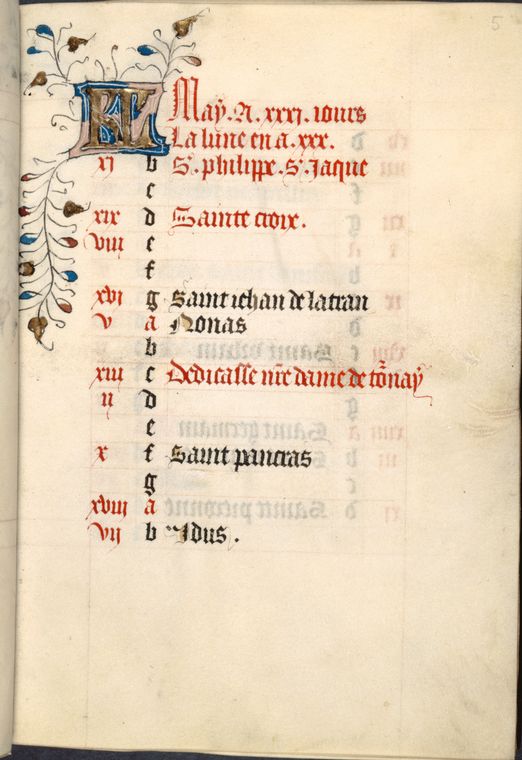 5
KL May. A. xxxi. iours
La lune en a. xxx.
xi b S. philippe. S. Jaque
c
xix d Sainte croix.
viii e
f
xvi g Saint iehan de latran
v a Nonas
b
xiii c Dedicasse nr̄e dame de to᷑nay
ii d
e
x f Saint pancras
g
xviii a
vii b Idus.